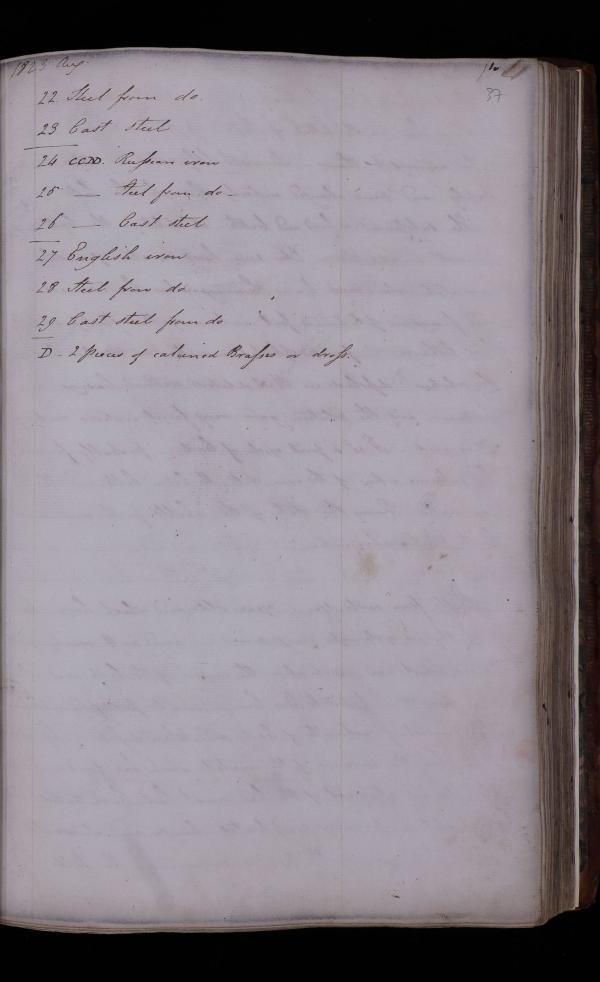 1823 Aug
37
22 Steel from do.
23 Cast steel
24 CCND. Russian iron
25 — Steel from do -
26 — Cast steel
27 English iron
28 Steel from do
29 Cast steel from do
D - 2 pieces of calcined Brasses or dross.